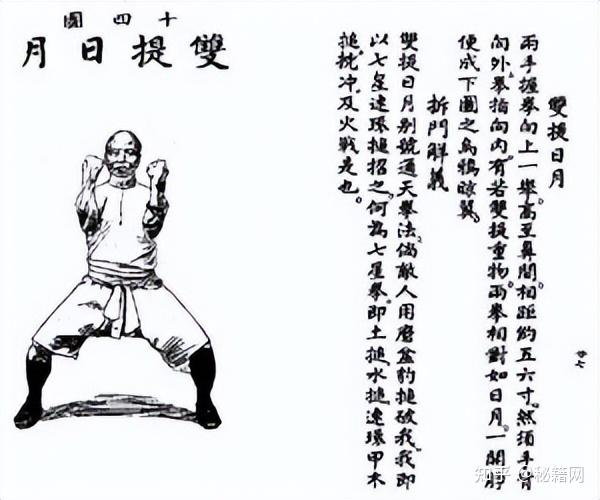 十四圖
雙提日月
雙提日月
兩手握拳向上一舉。高至鼻間。相距約五六寸。然須手背
向外。拳指向內。有若雙提重物。兩拳相對如日月。一開膊
便成下圖之烏鴉晾翼。
拆門解義
雙提日月別號通天拳法。倘敵人用磨盆豹搥破我。我即
以七星連環搥招之。何為七星拳。即土搥。水搥。連環甲木
搥。枕冲。及火戰是也。
廿七
知乎 @秘籍网